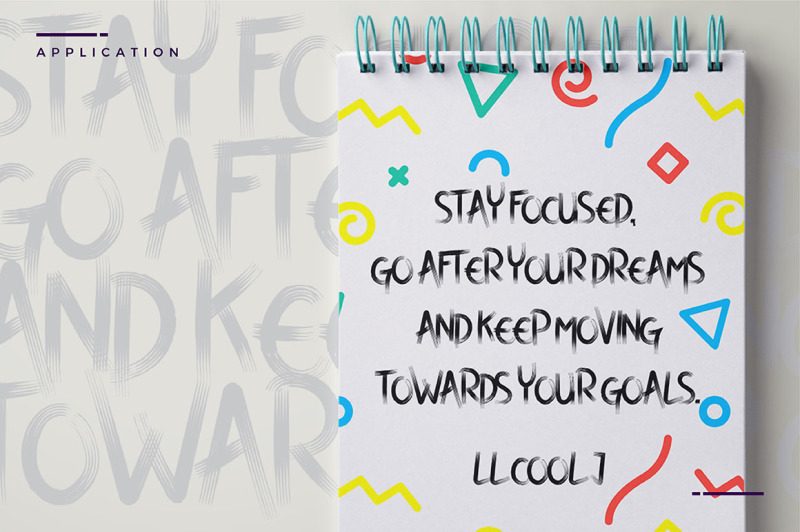 APPLICATION
STAY FO
GO AFTE
AND KEE
TOWAR
STAY FOCUSED,
GO AFTER YOUR DREAMS
AND KEEP MOVING
TOWARDS YOUR GOALS.
LL COOL J